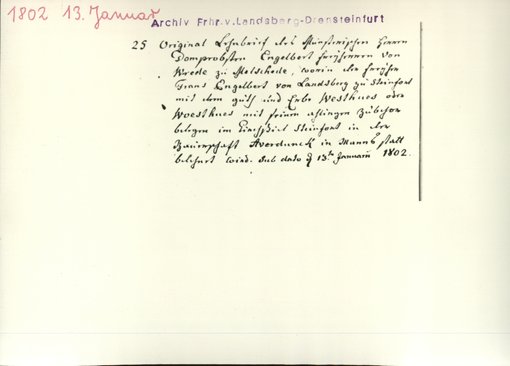 1802 13. Januar
Archiv Frhr.v.Landsberg-Drensteinfurt
25 Original Lehnbrief des Münsterischen Herrn
Domprobsten Engelbert freyherren von
Wrede zu Melschede, worin der freyherr
Franz Engelbert von Landsberg zu Steinfort
mit dem guth und Erbe Westhues oder
Woesthues mit seinen Zübehor
belegen im Kirchspiel Steinfort in der
Bauerschaft Averdunck in Manns statt
belehnt wird. Sub dato d 13ten Januarii 1802.